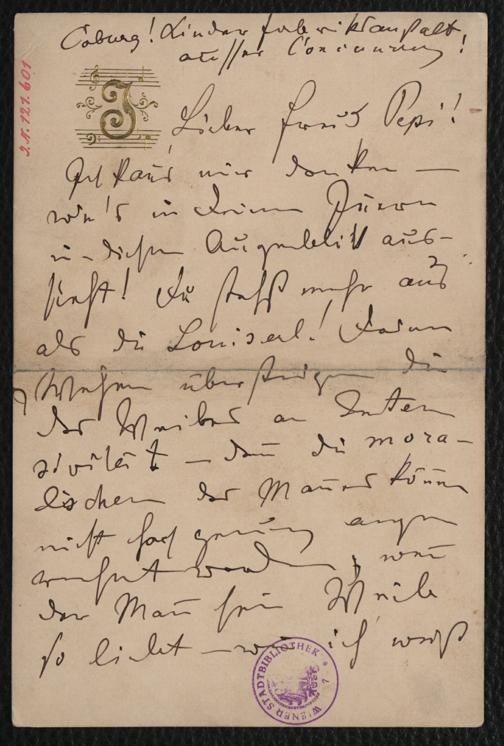 Coburg! Kinderfabriksanstalt
ausser Concurrenz!
J
Lieber Freund Pepi!
Ich kann mir denken —
wie's in Deinem Innern
in diesem Augenblick aus-
sieht! Du stehst mehr aus
als die Louiserl! Deine
Wehen übersteigen die
der Weiber an Inten
sivität — denn die mora-
lischen der Männer können
nicht hoch genug ange
werden, wenn
der Mann sein Weib
so liebt — wie ich weiß
WIENER STADTBIBLIOTHEK